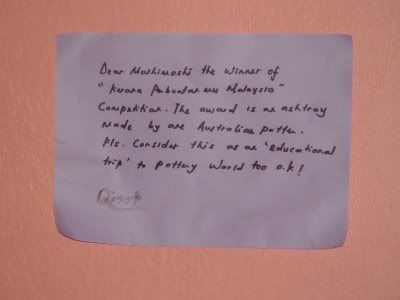 Dear Moshimoshi the winner of
" Malaysia"
Competition. The award is an ashtray
made by one Australian potter.
Pls. Consider this as an 'educational
trip' to pottery world too o.k!